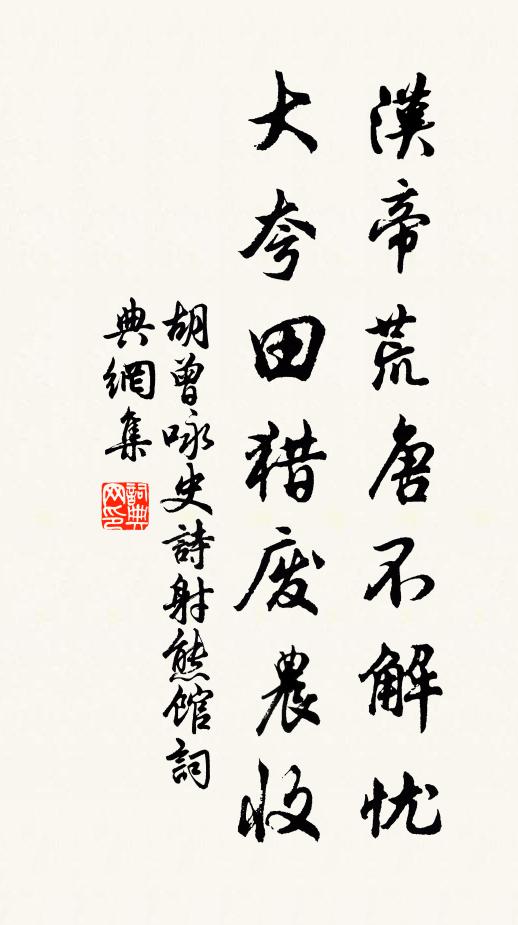 漢帝荒唐不解忧
大夸田猎废農收
胡曾咏史詩射熊馆詞
典網集
詞典网印